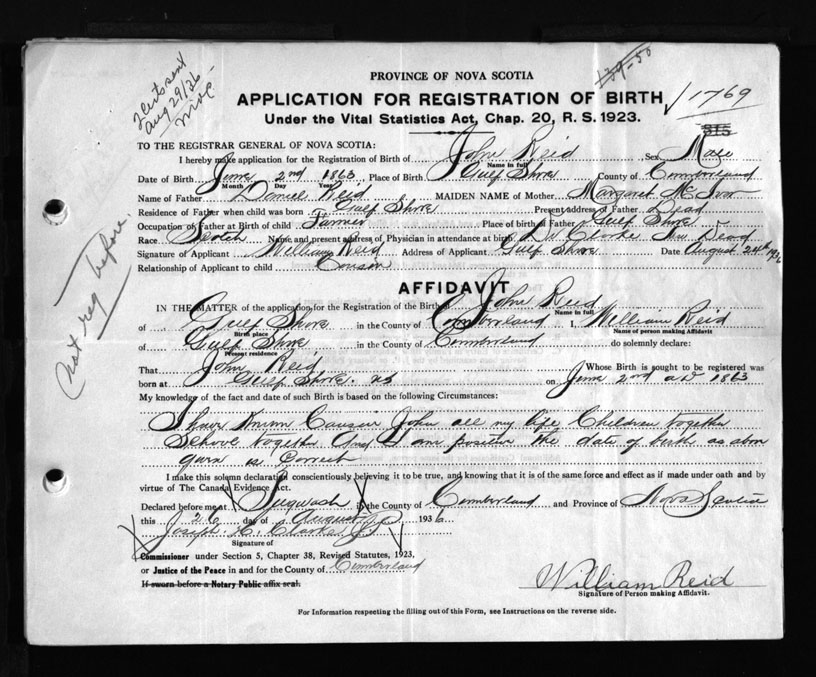 2 certs sent
Aug 29/36
139-50
PROVINCE OF NOVA SCOTIA
APPLICATION FOR REGISTRATION OF BIRTH
1769
Under the Vital Statistics Act, Chap. 20, R. S. 1923.
515
TO THE REGISTRAR GENERAL OF NOVA SCOTIA:
I hereby make application for the Registration of Birth of John Reid Sex Male
Name in full
Date of Birth June 2nd 1863 Place of Birth Gulf Shore County of Cumberland
Month Day Year
Name of Father Daniel Reid MAIDEN NAME of Mother Margaret
Residence of Father when child was born Gulf Shore Present address of Father Dead
Occupation of Father at Birth of child Farmer Place of birth of Father Gulf Shore
Race Scotch Name and present address of Physician in attendance at birth Dr Clarke Now Dead
Signature of Applicant William Reid Address of Applicant Gulf Shore Date August 24th 1936
Relationship of Applicant to child Cousin
not reg before.
AFFIDAVIT
IN THE MATTER of the application for the Registration of the Birth of John Reid
Name in full
of Gulf Shore in the County of Cumberland I, William Reid
Birth place Name of person making Affidavit
of Gulf Shore in the County of Cumberland do solemnly declare:
Present residence
That John Reid Whose Birth is sought to be registered was
born at Gulf Shore NS on June 2nd AD 1863
My knowledge of the fact and date of such Birth is based on the following Circumstances:
I have known Causin John all my life Children together
School together and I am positive the date of birth as abov
givn is Correct
I make this solemn declaration conscientiously believing it to be true, and knowing that it is of the same force and effect as if made under oath and by
virtue of The Canada Evidence Act.
Declared before me at Pugwash in the County of Cumberland and Province of Nova Scotia
this 26 day of August 1936
Joseph H. Clarke J P
Signature of
Commissioner under Section 5, Chapter 38, Revised Statutes, 1923,
or Justice of the Peace in and for the County of Cumberland
If sworn before a Notary Public affix seal.
William Reid
Signature of Person making Affidavit.
For Information respecting the filling out of this Form, see Instructions on the reverse side.